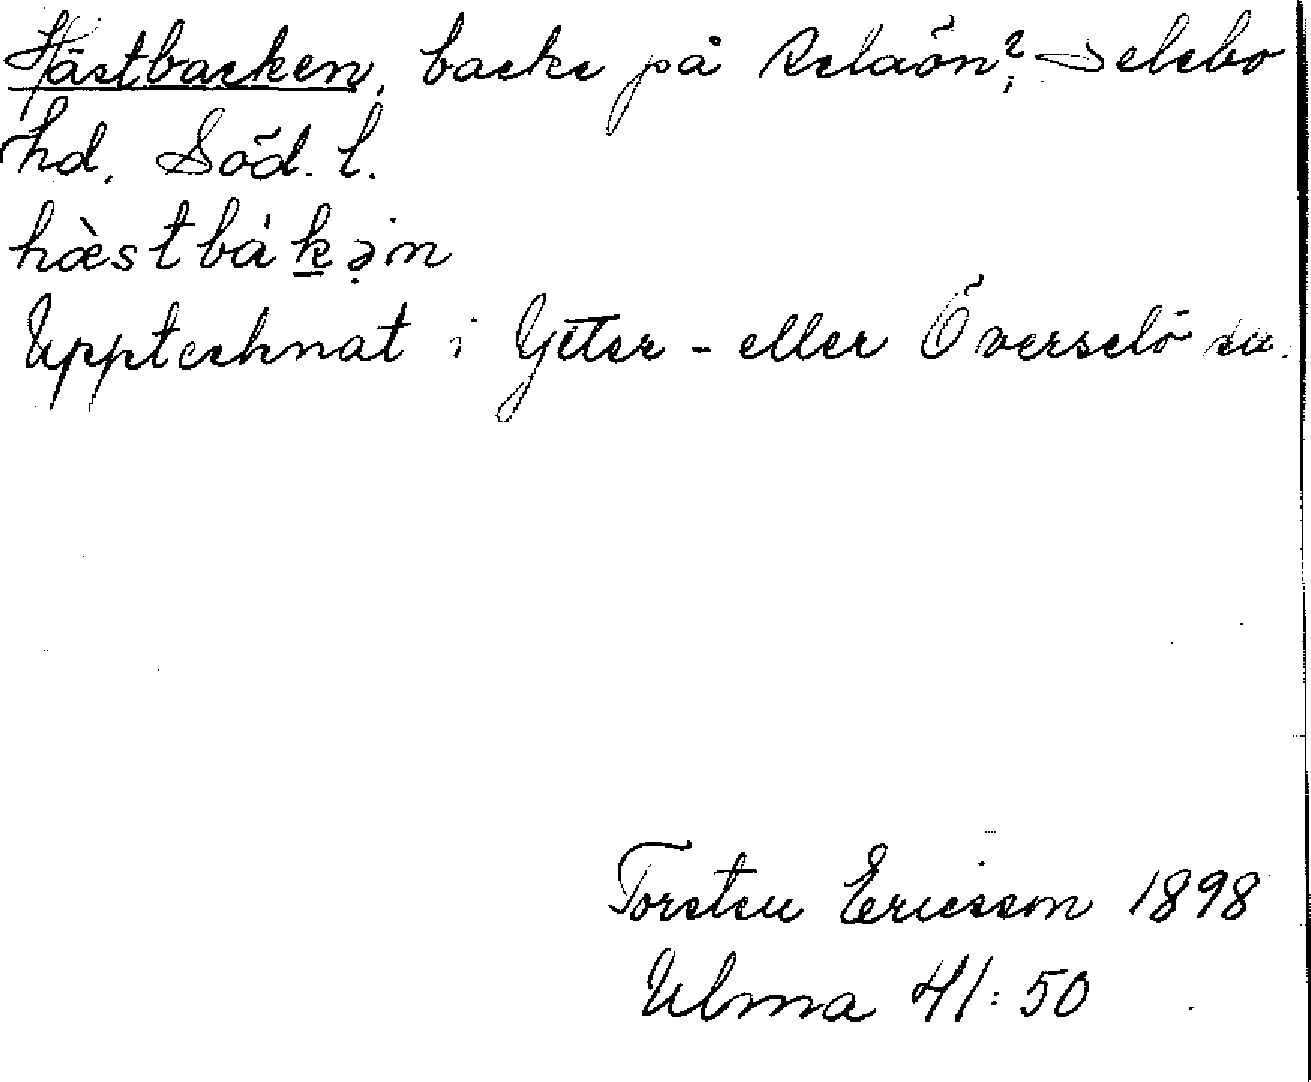 Hästbacken, backe på Selaön?, Selebo
hd, Söd. l.
hàstbàkən
Upptecknat i Ytter- eller Överselö sn.
Torsten Ericsson 1898
Ulma 41:50